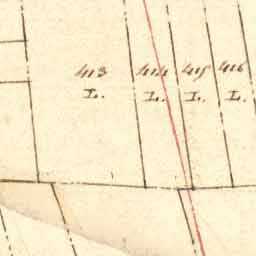 413 414 415 416
L. L. L. L.